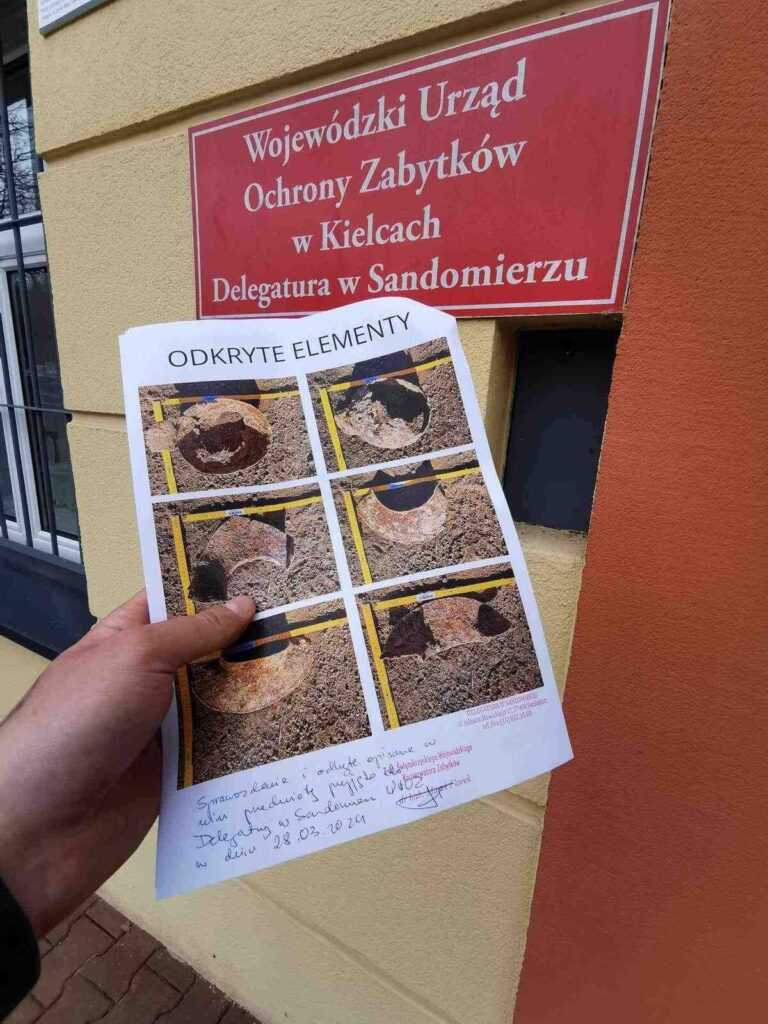 Wojewódzki Urząd
Ochrony Zabytków
w Kielcach
Delegatura w Sandomierzu
ODKRYTE ELEMENTY
DELEGATURA W SANDOMIERZU
Świętokrzyskiego Wojewódzkiego
Konserwatora Zabytków
Sprawozdanie i odkryte opisane w
nim przedmioty przyjęto do
Delegatury w Sandomierzu WUOZ
w dniu 28.03.2024